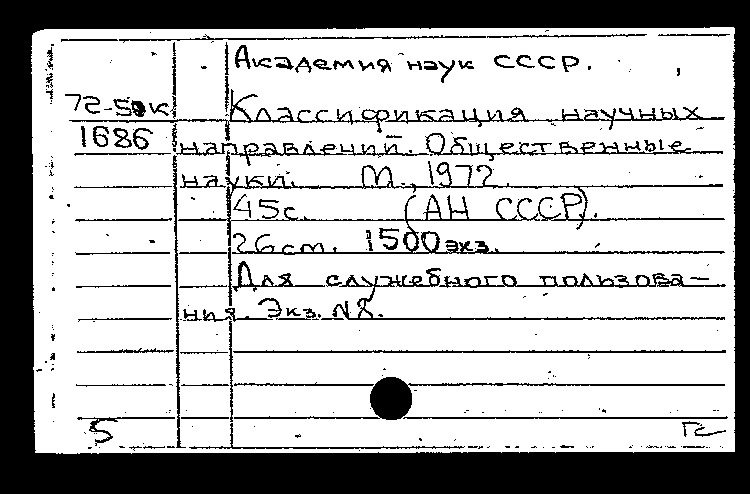 Академия наук СССР.
Классификация научных
1686
направлений. Общественные
науки. М., 1972.
45с. (АН СССР).
26cm. 1500 экз.
Для служебного пользова-
ния. Экз. №
5